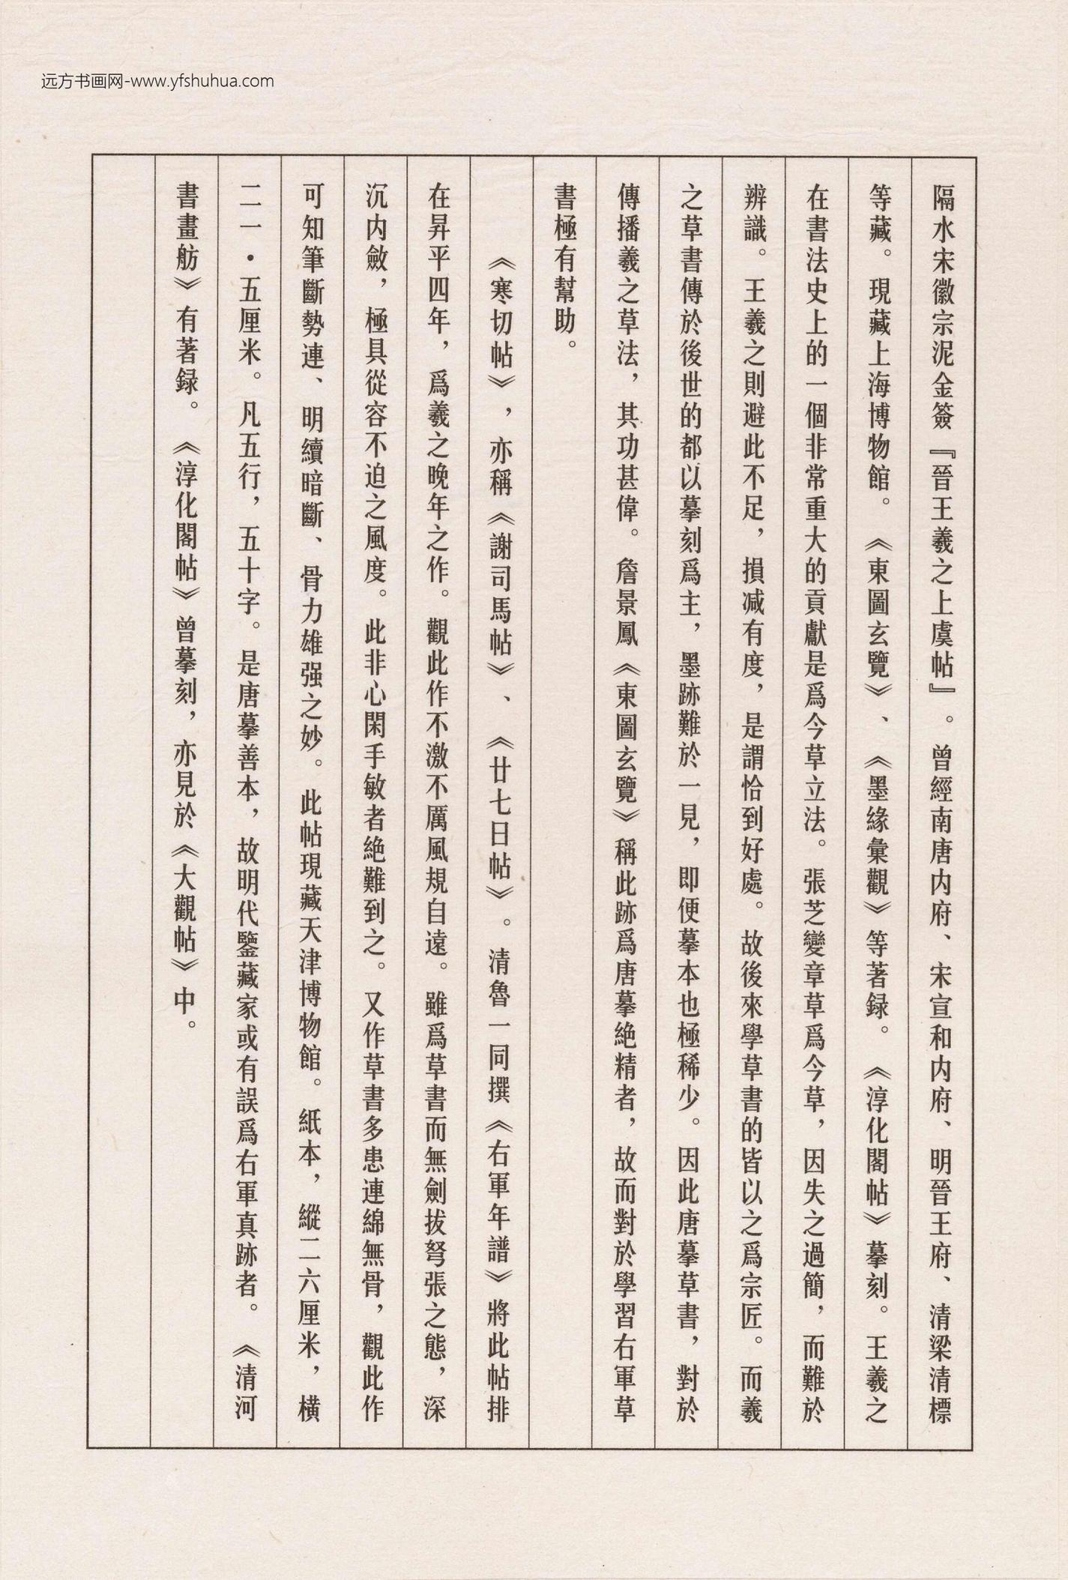 远方书画网-www.yfshuhua.com
隔水宋徽宗泥金簽『晉王羲之上虞帖』。曾經南唐内府、宋宣和内府、明晉王府、清梁清標
等藏。現藏上海博物館。《東圖玄覽》、《墨緣彙觀》等著録。《淳化閣帖》摹刻。王羲之
在書法史上的一個非常重大的貢獻是爲今草立法。張芝變章草爲今草，因失之過簡，而難於
辨識。王羲之則避此不足，損减有度，是謂恰到好處。故後來學草書的皆以之爲宗匠。而羲
之草書傳於後世的都以摹刻爲主，墨跡難於一見，即便摹本也極稀少。因此唐摹草書，對於
傳播羲之草法，其功甚偉。詹景鳳《東圖玄覽》稱此跡爲唐摹絶精者，故而對於學習右軍草
書極有幫助。
《寒切帖》，亦稱《謝司馬帖》、《廿七日帖》。清魯一同撰《右軍年譜》將此帖排
在昇平四年，爲羲之晚年之作。觀此作不激不厲風規自遠。雖爲草書而無劍拔弩張之態，深
沉内斂，極具從容不迫之風度。此非心閑手敏者絶難到之。又作草書多患連綿無骨，觀此作
可知筆斷勢連、明續暗斷、骨力雄强之妙。此帖現藏天津博物館。紙本，縱二六厘米，橫
二一·五厘米。凡五行，五十字。是唐摹善本，故明代鑒藏家或有誤爲右軍真跡者。《清河
書畫舫》有著録。《淳化閣帖》曾摹刻，亦見於《大觀帖》中。